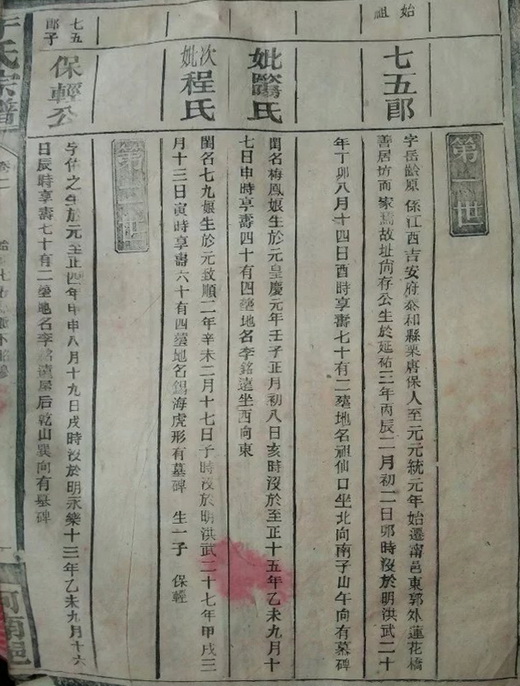 第 世
始祖
七五郎
字岳齡原 係江西吉安府泰和縣栗唐保人至元元統元年始遷甯邑東郭外蓮花橋
善居坊而家焉故址尚存公生於延祐三年丙辰二月初二日卯時沒於明洪武二十
年丁卯八月十四日酉時享壽七十有二塟地名祖仙口坐北向南子山午向有墓碑
妣 氏
閨名梅鳳娘生於元皇慶元年壬子正月初八日亥時沒於至正十五年乙未九月十
七日申時享壽四十有四塟地名李銘遠坐西向東
次妣程氏
閨名七九娘生於元致順二年辛未二月十七日子時沒於明洪武二十七年甲戌三
月十三日寅時享壽六十有四塟地名錫海虎形有墓碑 生一子 保輕
第 世
七五郎子
保輕公
字佑之生於元至正四年甲申八月十九日戌時沒於明永樂十三年乙未九月十六
日辰時享壽七十有二塟地名李銘遠屋后乾山巽向有墓碑
氏宗譜
河南